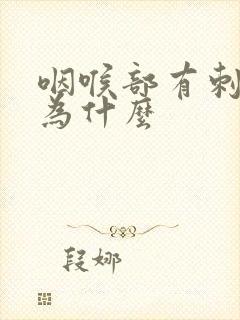 咽喉部有刺
為什麼
段娜